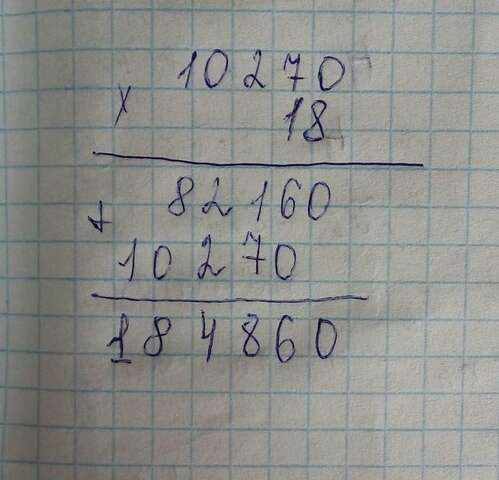 10270
x 18
82160
+
10270
184860